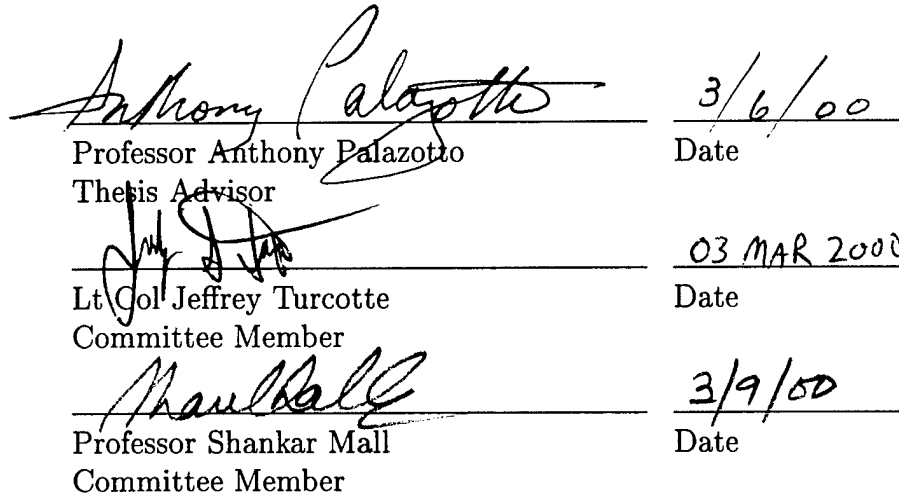 Anthony Palazotto 3/6/00
Professor Anthony Palazotto Date
Thesis Advisor
03 MAR 2000
Lt Col Jeffrey Turcotte Date
Committee Member
3/9/00
Professor Shankar Mall Date
Committee Member